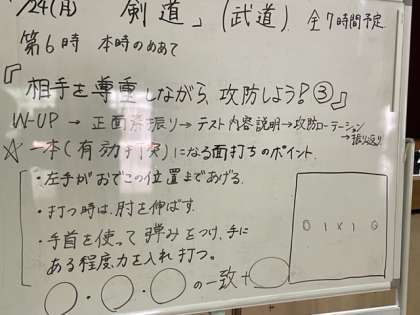 /24(月) 剣道」(武道) 全7時間予定
第6時 本時のめあて
『相手を尊重しながら、攻防しよう!③』
W-UP → 正面素振り→テスト内容説明→攻防ローテーション
→振り返り
☆一本(有効打突)になる面打ちのポイント
・左手がおでこの位置まであげる。
・打つ時は、肘を伸ばす。
・手首を使って弾みをつけ、手に
ある程度力を入れ打つ。
○・○・○の一致+○